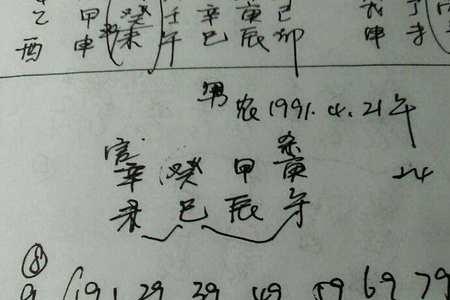 乙 甲 癸 壬 辛 庚 己
酉 申 未 午 巳 辰 卯 申
男 农1991.4.21午
官 杀
辛 癸 甲 庚 24
未 巳 辰 午
⑧
9 19 29 39 49 59 69 79